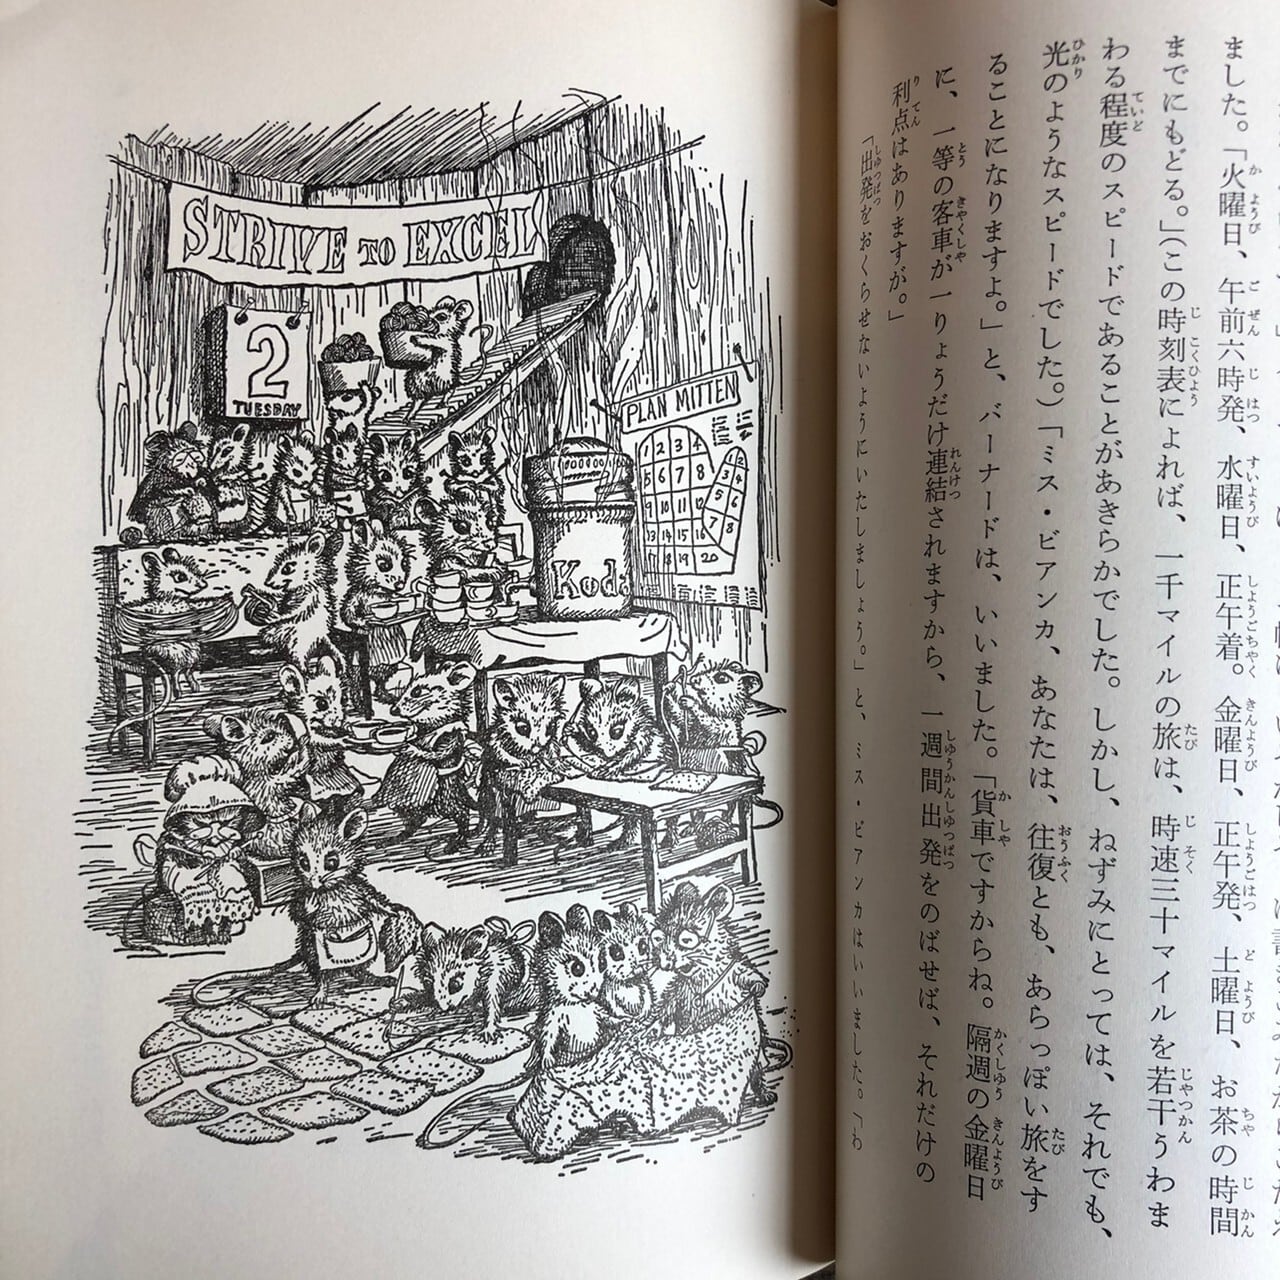 ました。「火曜日、午前六時発、水曜日、正午着。金曜日、正午発、土曜日、お茶の時間
までにもどる。」(この時刻表によれば、一千マイルの旅は、時速三十マイルを若干うわま
わる程度のスピードであることがあきらかでした。しかし、ねずみにとっては、それでも、
光のようなスピードでした。)「ミス・ビアンカ、あなたは、往復とも、あらっぽい旅をす
ることになりますよ。」と、バーナードは、いいました。「貨車ですからね。隔週の金曜日
に、一等の客車が一りょうだけ連結されますから、一週間出発をのばせば、それだけの
利点はありますが。」
「出発をおくらせないようにいたしましょう。」と、ミス・ビアンカはいいました。「わ
STRIVE TO EXCEL
2
TUESDAY
PLAN MITTEN
1 2 3 4
5 6 7 8
9 10 11 12
1 2
3 4
5 6
7 8
Koda